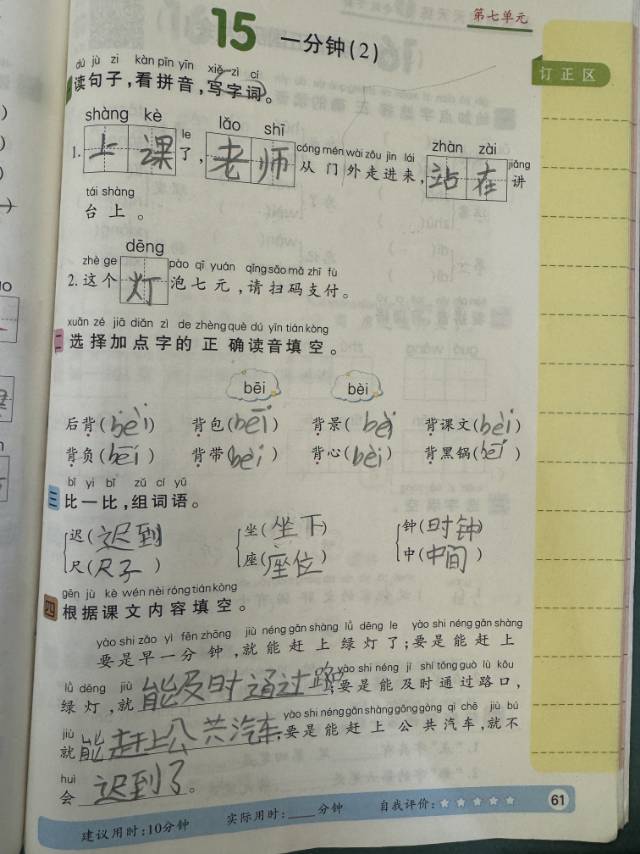 第七单元
15 一分钟(2)
订正区
dú jù zi kàn pīn yīn xiě zì cí
读句子,看拼音,写字词。
shàng kè le lǎo shī cóng mén wài zǒu jìn lái zhàn zài jiǎng
1. 上课了,老师从门外走进来,站在讲
tái shàng
台上。
zhè ge dēng pào qī yuán qǐng sǎo mǎ zhī fù
2.这个灯泡七元,请扫码支付。
xuǎn zé jiā diǎn zì de zhèng què dú yīn tián kòng
二 选择加点字的正确读音填空。
bēi bèi
后背(bèi) 背包(bēi) 背景(bèi) 背课文(bèi)
背负(bēi) 背带(bēi) 背心(bèi) 背黑锅(bēi)
bǐ yi bǐ zǔ cí yǔ
三 比一比,组词语。
迟(迟到) 坐(坐下) 钟(时钟)
尺(尺子) 座(座位) 中(中间)
gēn jù kè wén nèi róng tián kòng
四 根据课文内容填空。
yào shi zǎo yì fēn zhōng jiù néng gǎn shàng lǜ dēng le yào shi néng gǎn shàng
要是早一分钟,就能赶上绿灯了;要是能赶上
lǜ dēng jiù yào shi néng jí shí tōng guò lù kǒu
绿灯,就能及时通过路口;要是能及时通过路口,
jiù yào shi néng gǎn shàng gōng gòng qì chē jiù bú
就能赶上公共汽车;要是能赶上公共汽车,就不
huì
会迟到了。
建议用时:10分钟 实际用时:____分钟 自我评价:☆☆☆☆☆ 61